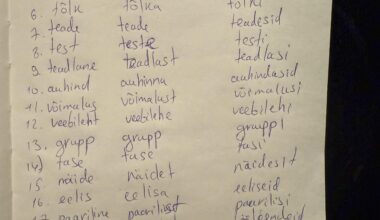 6. tõlk tõlka tõlki
7. teade teade teadesid
8. test teste testi
9. teadlane teadlast teadlasi
10. auhind auhinna auhindasid
11. võimalus võimalust võimalusi
12. veebileht veebilehe veebilehi
13. grupp grupp gruppi
14) fase fase fasi
15. näide näidet näidesit
16. eelis eelisa eeliseid
17. paariline paarilist paarilisi